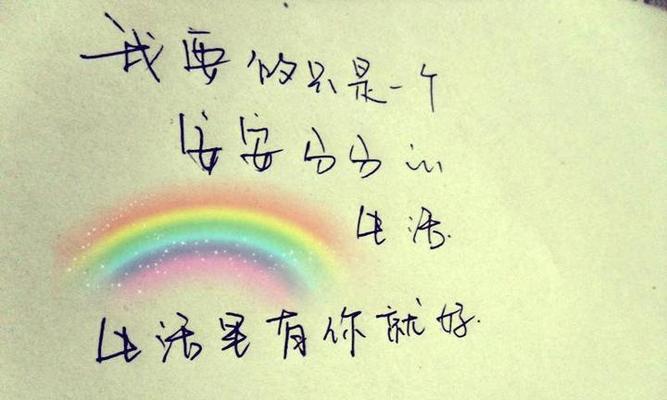 我要的只是一个
安安分分的
生活.
生活里有你就好.